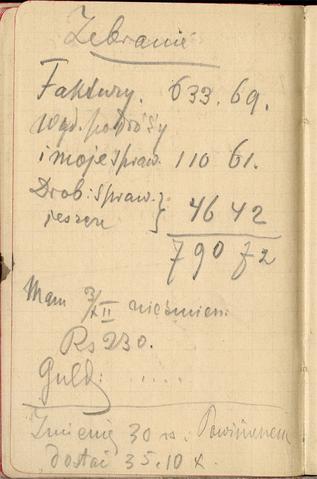 Zebranie
Faktury. 633.69.
wyd. podróży
i moje spraw. 110 61.
Drob: spraw. }
jeszcze } 46 42
790 72
Mam 3/XII
Rs 230.
Guld: .....
Zmienię 30 rs. Powinienem
dostać 35.10 x.